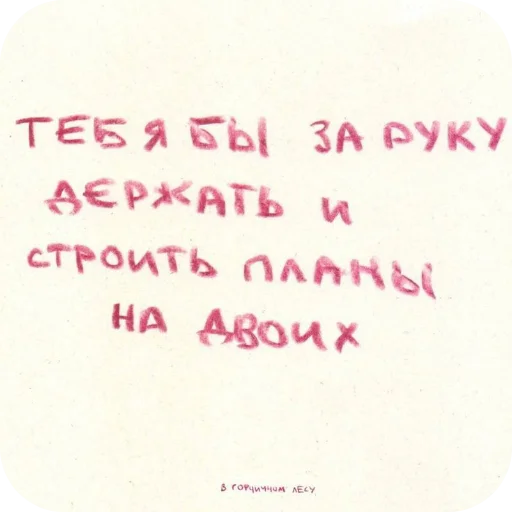 ТЕБЯ БЫ ЗА РУКУ
ДЕРЖАТЬ И
СТРОИТЬ ПЛАНЫ
НА ДВОИХ
В ГОРЧИЧНОМ ЛЕСУ